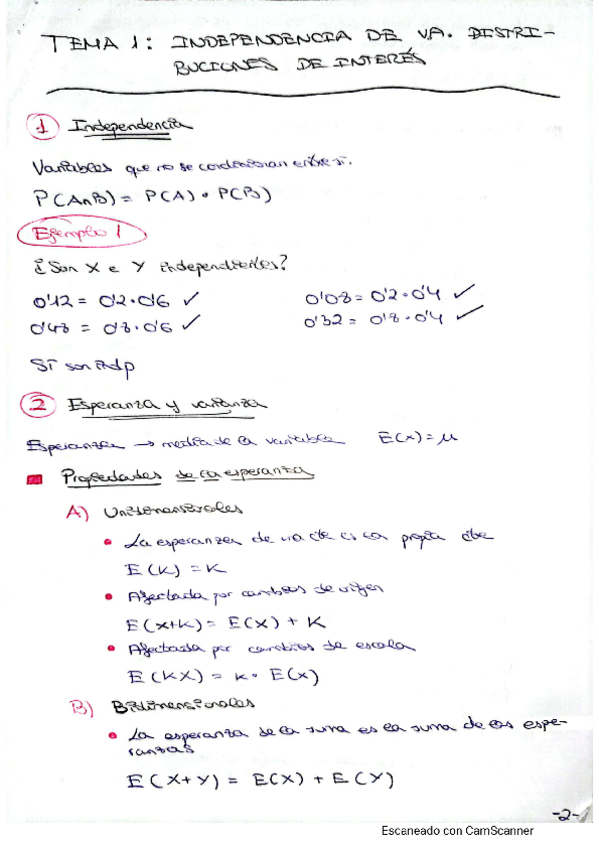 TEMA 1: INDEPENDENCIA DE VA. DISTRI-
BUCIONES DE INTERÉS
1 Independencia
Variables que no se condicionan entre sí.
P(A∩B) = P(A) · P(B)
Ejemplo 1
¿Son X e Y independientes?
0'12 = 0'2 · 0'6 ✓ 0'08 = 0'2 · 0'4 ✓
0'48 = 0'8 · 0'6 ✓ 0'32 = 0'8 · 0'4 ✓
SÍ son indp
2 Esperanza y varianza
Esperanza → media de la variable E(x) = μ
Propiedades de la esperanza
A) Unidimensionales
• La esperanza de una cte es la propia cte
E(K) = K
• Afectada por cambios de origen
E(x+K) = E(x) + K
• Afectada por cambios de escala
E(KX) = K · E(x)
B) Bidimensionales
• La esperanza de la suma es la suma de las espe-
ranzas
E(X+Y) = E(X) + E(Y)
-2-
Escaneado con CamScanner